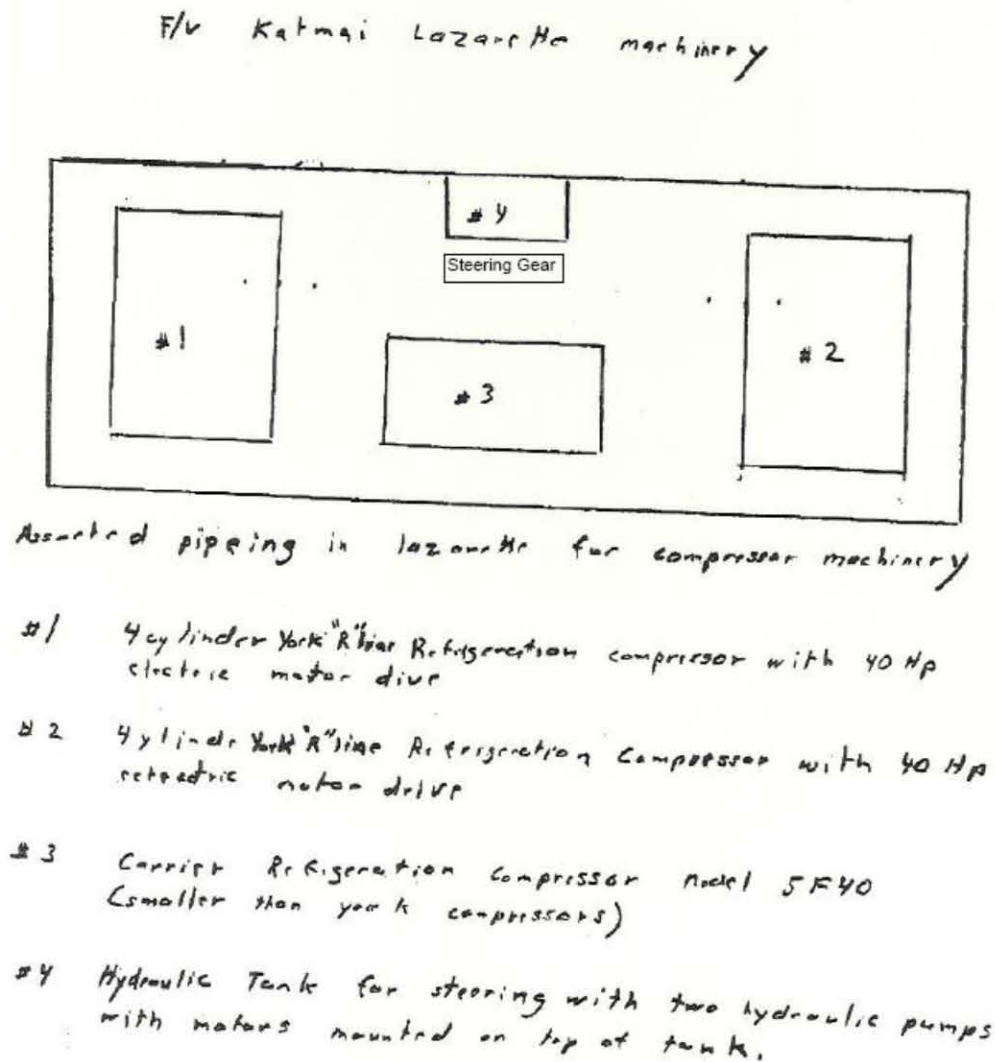 F/V Katmai Lazarette machinery
#4
Steering Gear
#1
#2
#3
Assorted pipeing in lazarette for compressor machinery
#1 4cylinder York "R" line Refrigeration compressor with 40 Hp
electric motor dive
#2 4ylinder York "R" line Refrigeration Compressor with 40 Hp
motor drive
#3 Carrier Refrigeration compressor model 5F40
(smaller than york compressors)
#4 Hydraulic Tank for steering with two hydraulic pumps
with motors mounted on top of tank.